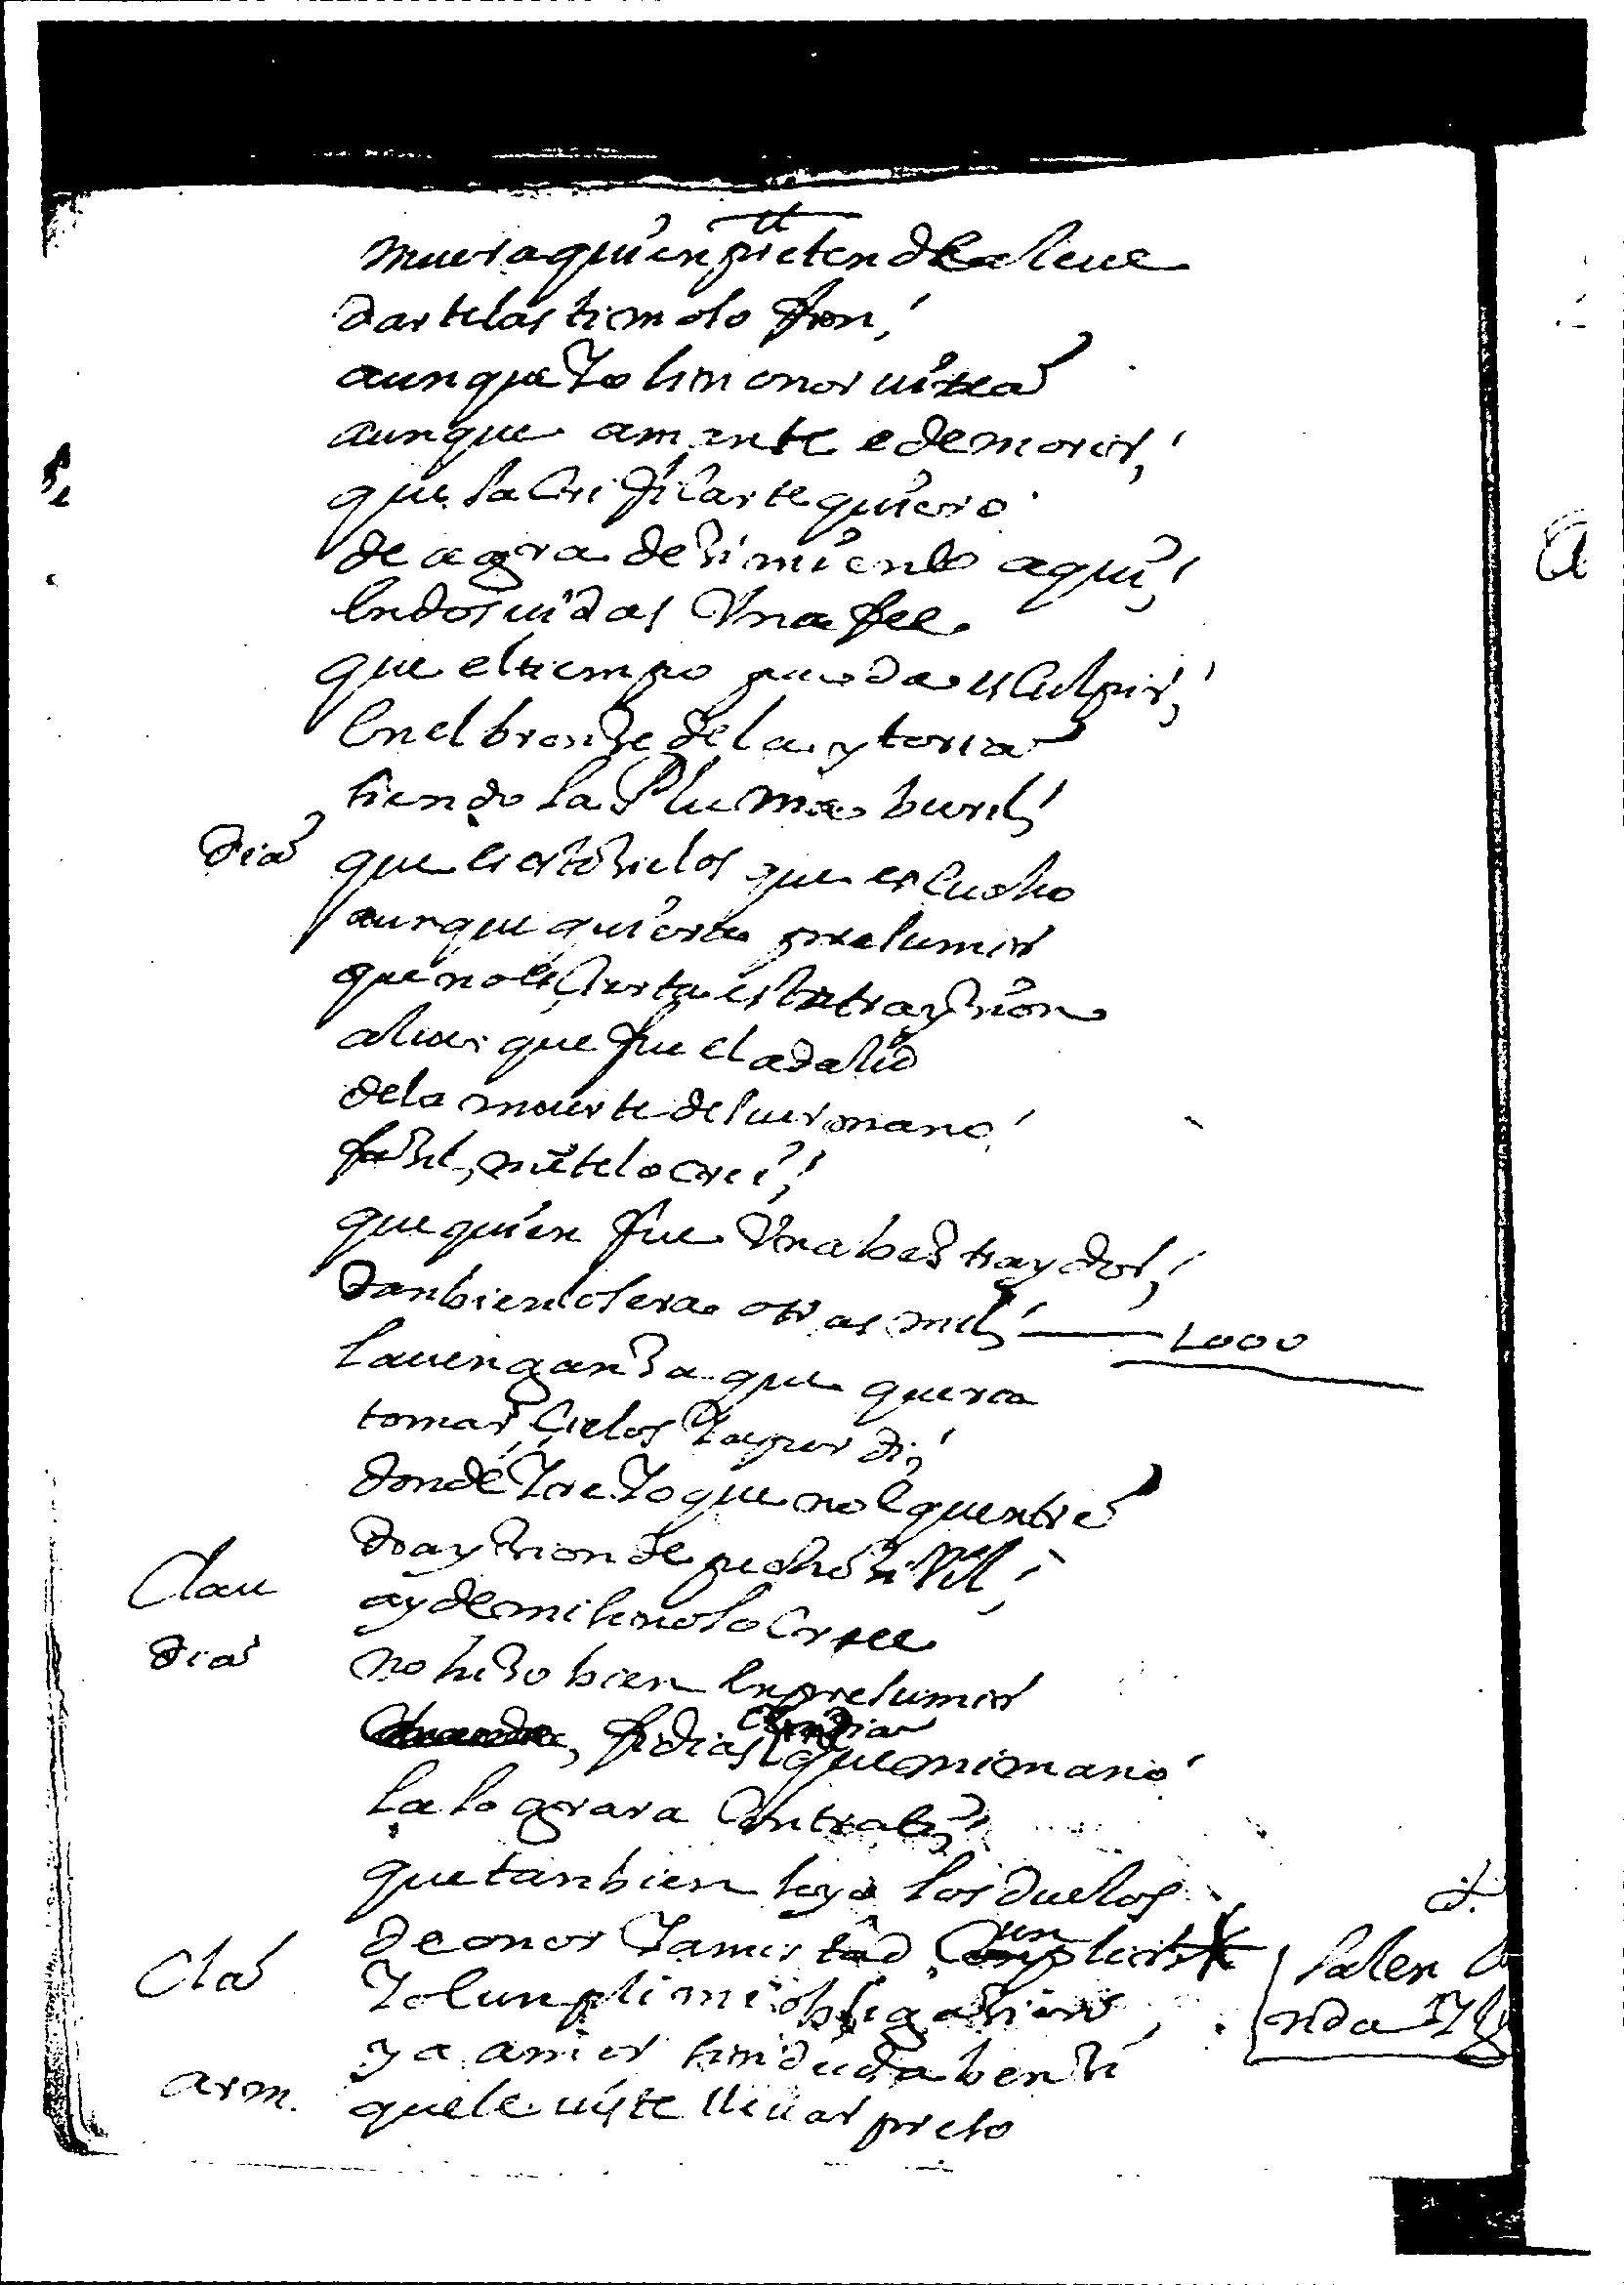 muera quien pretende aleue
darte lastimoso fin,
aunque yo sin onor uiua
aunque amante e de morir,
que sacrificarte quiero
de agradesimiento aqui,
en dos uidas Vna fee
que el tiempo pueda esculpir,
en el bronse de la ystoria
siendo la Pluma buril,
dia que es esto sielos que escucho
aunque quiera presumir
que no es cierta esta traysion
aleue que fue el adalid
de la muerte de su ermano
fasil, me lo crei,
que quien fue Vna bes traydor,
tanbien lo sera otras mil, 1000
la uengansa que queria
tomar, cielos ya perdi,
donde yra yo que no enquentre
traysion de pecho sivil,
Clau ay de mi si no lo cree
dia no hiso bien en presumir
fidias que mi mano
la lograra contra ti,
que tanbien se yo los duelos
de onor y amistad cunplir
Cla yo cunpli mi obligasion
y a amor sin duda bensi
arm. que le uiste lleuar preso
salen